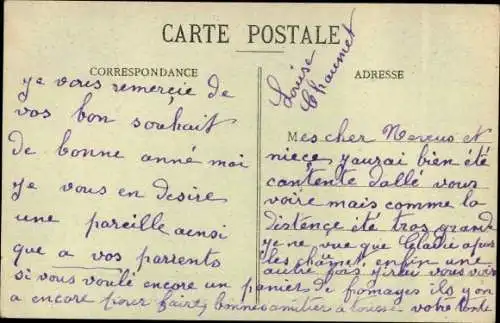 CARTE POSTALE
CORRESPONDANCE
ADRESSE
Louise
Chaumet
je vous remerçie de
vos bon souhait
de bonne anné moi
je vous en desire
une pareille ainsi
que a vos parrents
si vous voulé encore un panier de fromages ils y on
a encore pour faire, bonnes amitier a tousse votre tante
Mes cher Neveus et
niece jaurai bien été
cantente dallé vous
voire mais comme la
distence été tros grande
je ne vue que
les enfin une
autre fois jirai vous voir